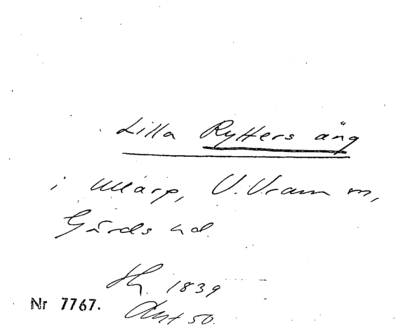 Lilla Rytters äng
i Ullarp, V. Vram sn,
Gärds hd.
Hy. 1839
Avst 50.
Nr 7767.